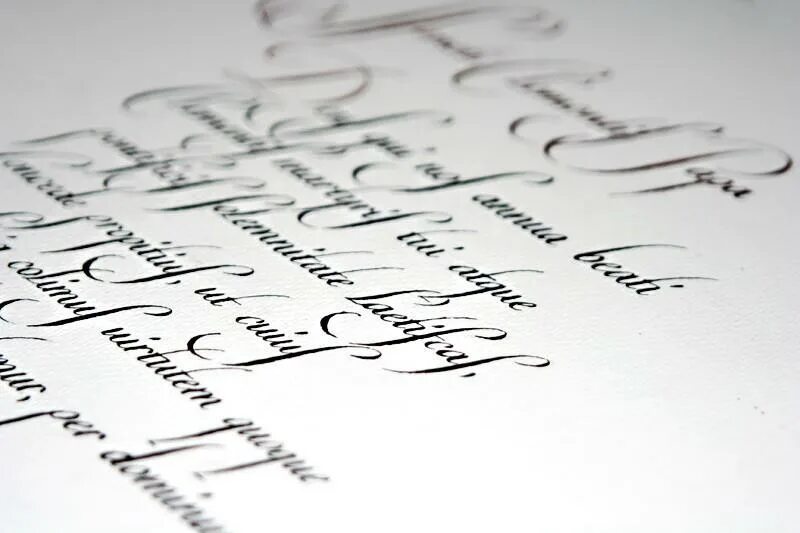 Clementis Papa
Deus qui nos annua beati
Clementis martyris tui atque
pontificis solemnitate laetificas,
concede propitius, ut cuius
colimus uirtutem quoque
per